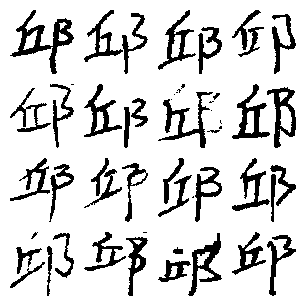 邱邱邱邱
邱邱邱邱
邱邱邱邱
邱邱邱邱